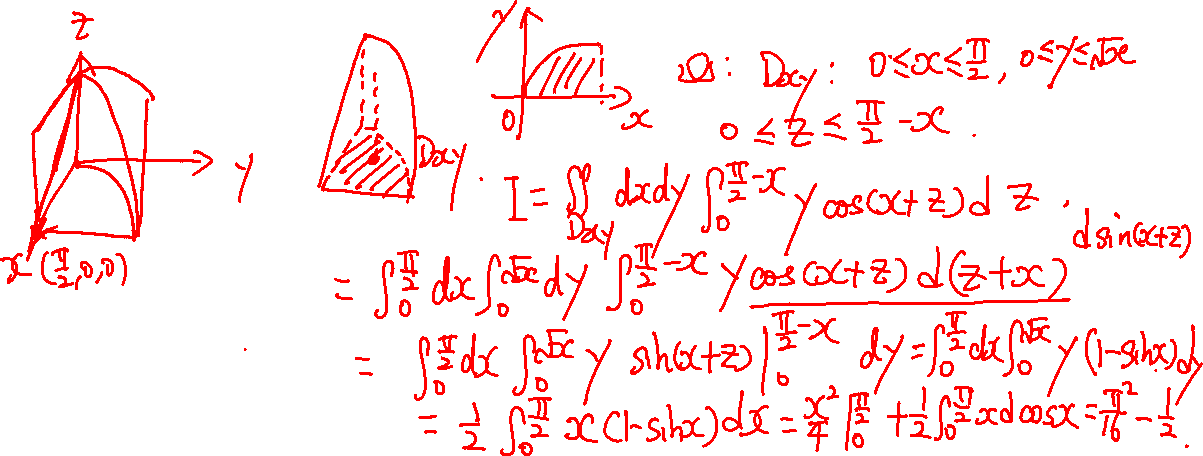 z
y
x (π/2,0,0)
Dxy
y
0
x
Ω: Dxy: 0≤x≤π/2, 0≤y≤√x
0≤z≤π/2-x.
I=∬_Dxy dxdy ∫_0^{π/2-x} y cos(x+z)d z.
=∫_0^{π/2} dx∫_0^{√x} dy ∫_0^{π/2-x} y cos(x+z) d(z+x)
dsin(x+z)
=∫_0^{π/2} dx ∫_0^{√x} y sin(x+z)|_0^{π/2-x} dy=∫_0^{π/2} dx∫_0^{√x} y(1-sinx)dy
=1/2 ∫_0^{π/2} x(1-sinx)dx=x²/4|_0^{π/2}+1/2∫_0^{π/2} xdcosx=π²/16-1/2.